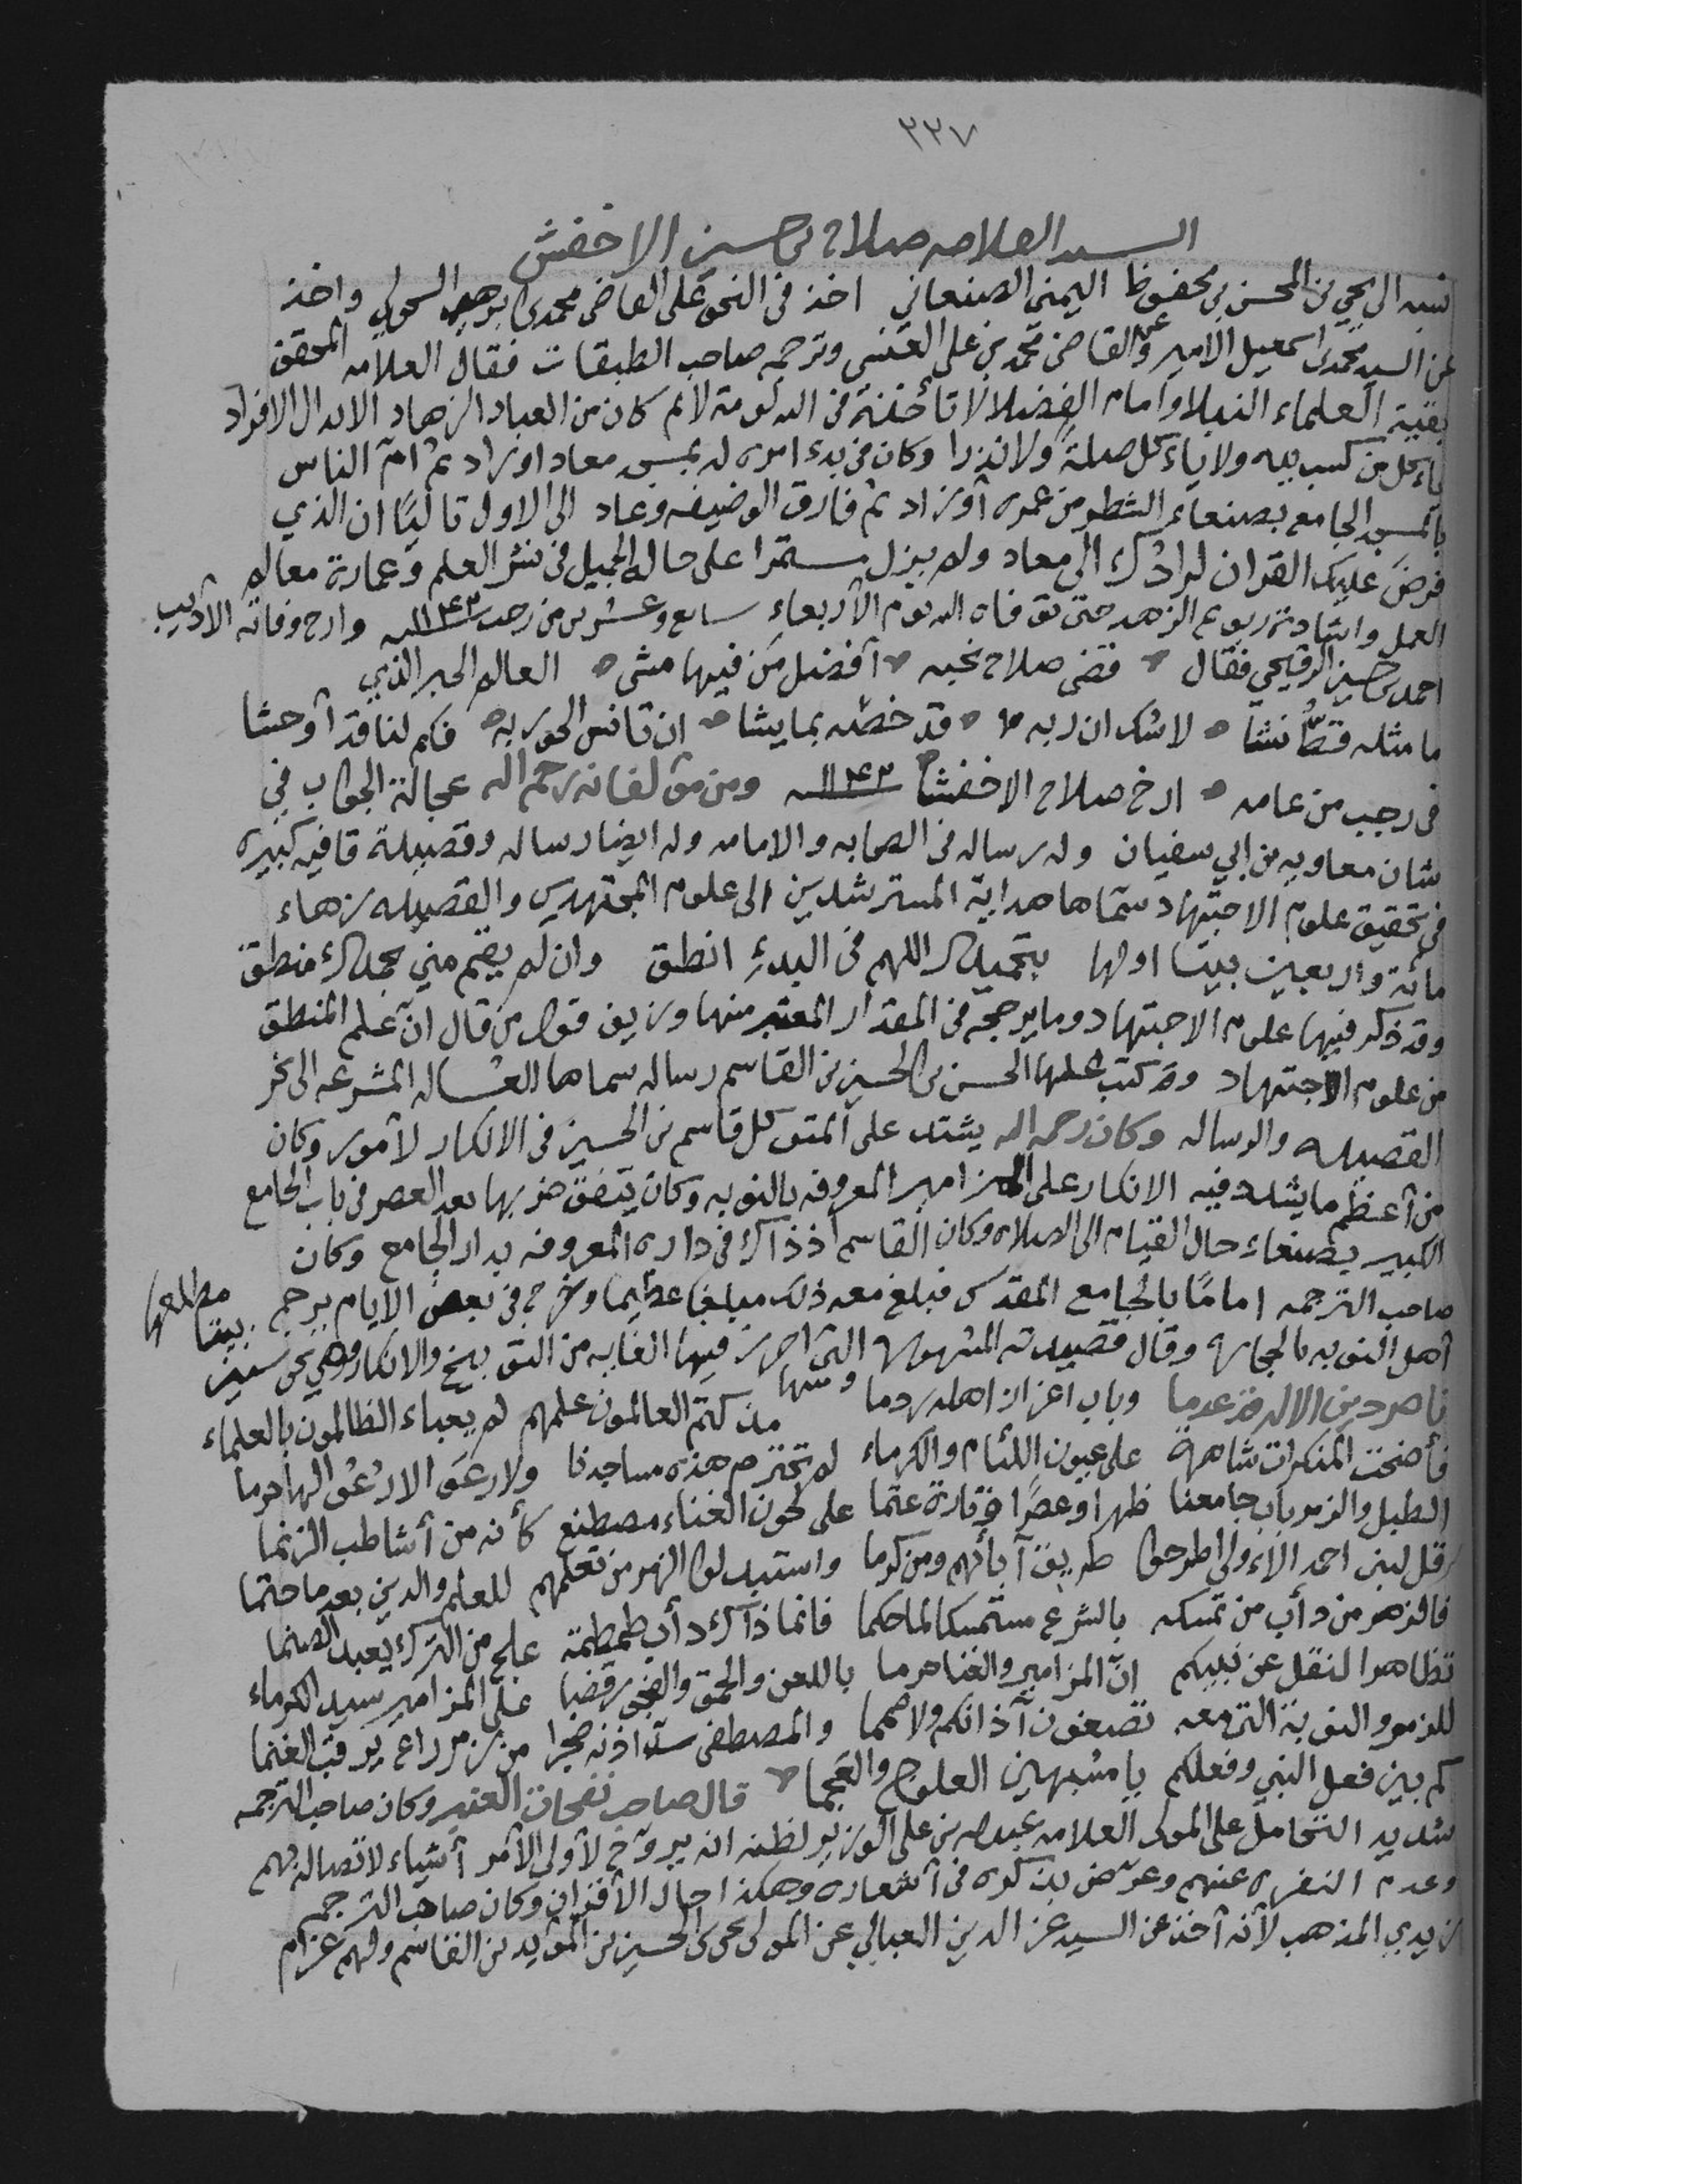 ٢٢٧
السيد العلامه صلاح بن حسين الاخفش
نسبه الى يحيى بن المحسن بن محفوظ اليمني الصنعاني اخذ في النحو على القاضي محمد بن ابرهيم السحولي واخذ
عن السيد محمد بن اسمعيل الامير وعن القاضي محمد بن علي العنسي وترجمه صاحب الطبقات فقال العلامه المحقق
بقية العلماء النبلا وامام الفضلا لا تأخذنه في الله لومة لائم كان من العباد الزهاد الابدال الافراد
يأكل من كسب يده ولا ياءكل صلة ولا نذرا وكان في بدء امره له بمسجد معاد اوزاد ثم امّ الناس
بالمسجد الجامع بصنعاء الشطر من عمره أوزاد ثم فارق الوضيفه وعاد الى الاول تاليًا ان الذي
فرضَ عليك القران لرادّك الى معاد ولم يزل مستمرا على حاله الجميل في نشر العلم وعمارة معالم
العمل واشادة ربوع الزهد حتى توفاه الله يوم الأربعاء سابع وعشرين من رجب ١١٤٣سنه وارخ وفاته الأديب
احمد بن حسين الرقيحي فقال قضى صلاح نحبه أفضل مَن فيها مشى العالم الحبر الذي
ما مثله قطّ نشا لا شك ان ربه قد خصّه بما يشا ان تانس الحور به فكم لنا قد أوحشا
في رجب من عامه ارخ صلاح الاخفشا ١١٤٣سنه ومن مؤلفاته رحمه الله عجالة الجواب في
شان معاويه بن ابي سفيان وله رساله في الصحابه والامامه وله ايضا رساله وقصيدة قافيه كبيره
في تحقيق علوم الاجتهاد سمّاها هداية المسترشدين الى علوم المجتهدين والقصيده زهاء
مائة واربعين بيتا اولها بتحميدك اللهم في البدءِ انطق وان لم يقم مني بحمدك منطق
وقد ذكر فيها علوم الاجتهاد وما يرجحه في المقدار المعتبر منها وزيف قول من قال انّ علم المنطق
من علوم الاجتهاد وقد كتب عليها الحسن بن الحسين بن القاسم رساله سماها العساله المشرعه الى نحر
القصيده والرساله وكان رحمه الله يشتد على المتوكل قاسم بن الحسين في الانكار لأمور وكان
من أعظم ما يشدد فيه الانكار على المزامير المعروفه بالنوبه وكان يتفق ضربها بعد العصر في باب الجامع
الكبير بصنعاء حال القيام الى الصلاه وكان القاسم أذ ذاك في داره المعروفه بدار الجامع وكان
صاحب الترجمه امامًا بالجامع المقدس فبلغ معه ذلك مبلغا عظيما وخرج في بعض الايام يرجم
أهل النوبه بالحجاره وقال قصيدته المشهوره التي احرز فيها الغايه من التوبيخ والانكار وهي نحو ستين بيتا مطلعها
ناصر دين الاله قد عدما وباب اعزاز اهله ردما ومنها مذ كتم العالمون علمهم لم يعباء الظالمون بالعلماء
فأضحت المنكرات شاهرة على عيون اللئام والكرماء لم تحترم هذه مساجدنا ولا رعَى الارذعُ الها حرما
الطبل والزمر باب جامعنا ظهرا وعصرًا وتارة عتما على لحون الغناء مصطنع كأنه من أشاطب الزنما
قل لبني احمد الاءولى اطرحوا طريق آبائهم ومن كرما واستبدلوا الزمر من تعلمهم للعلم والدين بعد ما حتما
فالزمر من دأب من تمسكه بالشرع مستمسكا لما حكما فانما ذاك دأب طمطمة علج من الترك يعبد الصنما
تظاهر النقل عن نبيكم انّ المزامير والغنا حرما باللعن والحمق والفجور قضا على المزامير سيد الكرماء
للزمر والنوبة التي معه تصغون آذانكم ولا صمما والمصطفى سدّ اذنه ضجرا من زمر راع يرقب الغنما
كم بين فعل النبي وفعلكم يا مشبهين العلوج والعجما قال صاحب نفحات العنبر وكان صاحب الترجمه
شديد التحامل على المولى العلامه عبدالله بن علي الوزير لظنه انه يروّح لأولي الأمر أشياء لاتصاله بهم
وعدم النفره عنهم وعرّض بذكره في أشعاره وهكذا حال الأقران وكان صاحب الترجمه
زيدي المذهب لأنه أخذ عن السيد عز الدين العبالي عن المولى يحيى بن الحسين بن المؤيد بن القاسم ولهم عزام